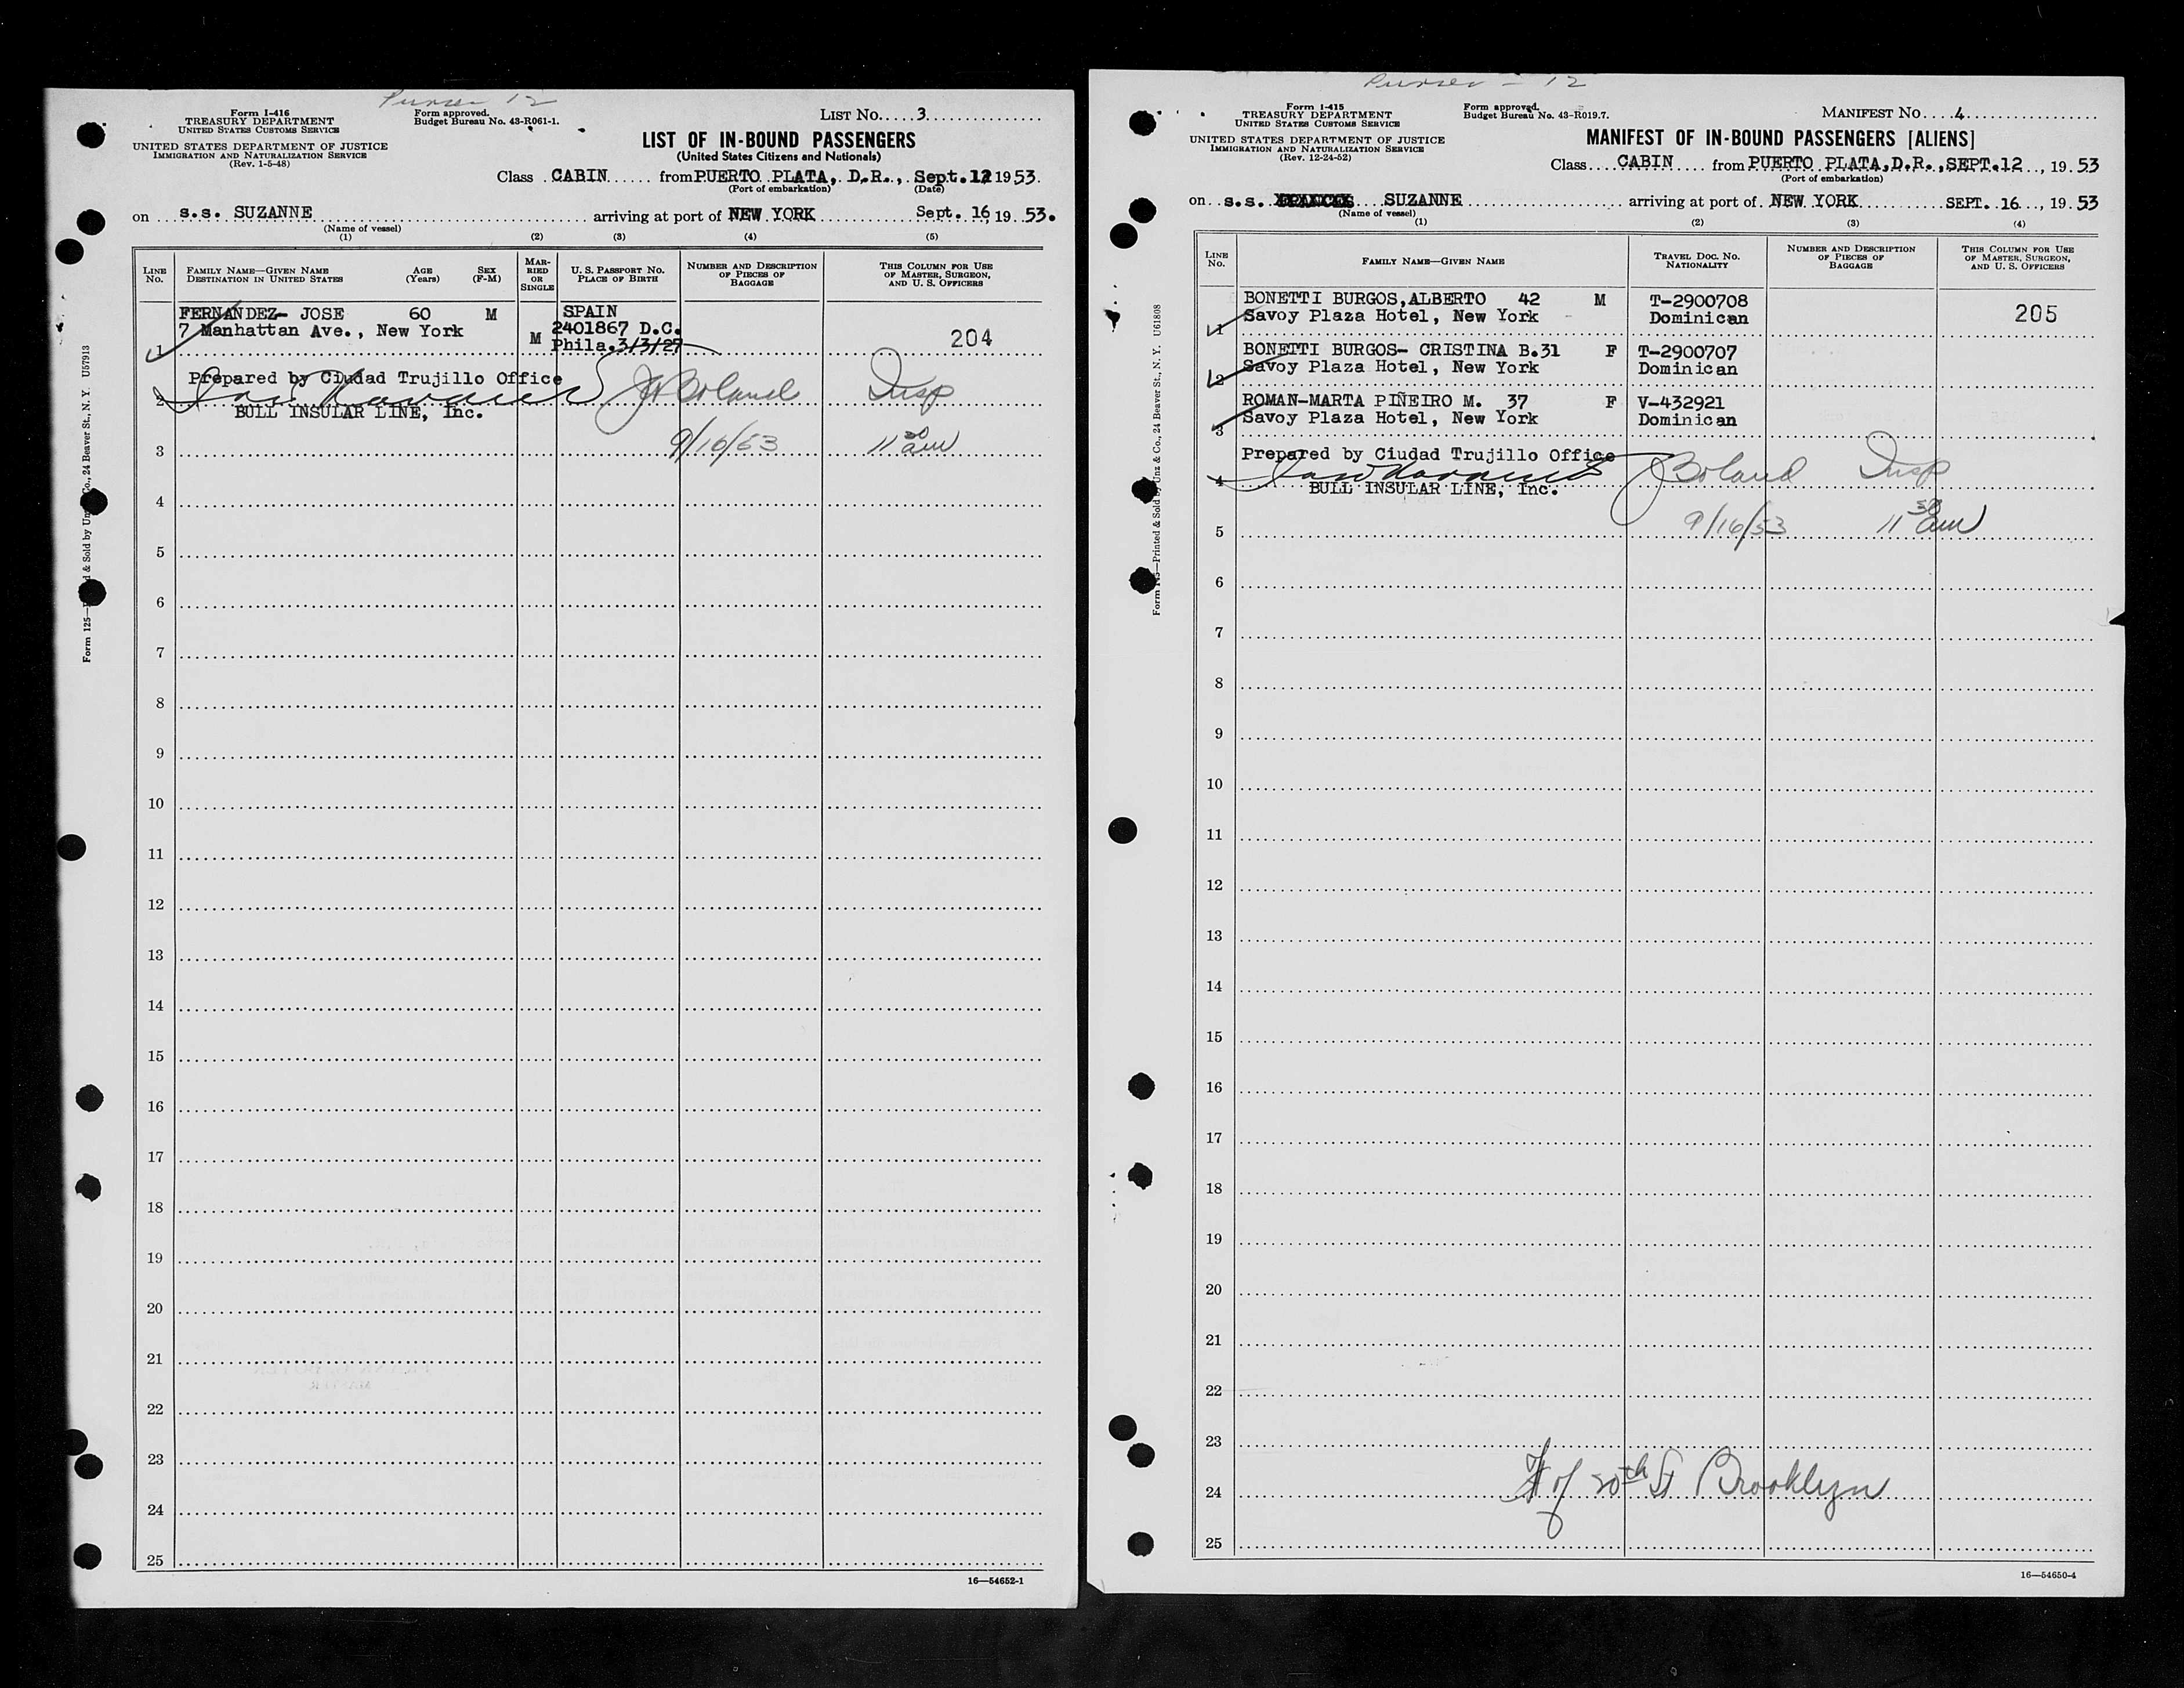 Purser - 12
Form I-416
TREASURY DEPARTMENT
UNITED STATES CUSTOMS SERVICE
UNITED STATES DEPARTMENT OF JUSTICE
IMMIGRATION AND NATURALIZATION SERVICE
(Rev. 1-5-48)
Form approved.
Budget Bureau No. 43-R061-1.
LIST No. 3
LIST OF IN-BOUND PASSENGERS
(United States Citizens and Nationals)
Class CABIN from PUERTO PLATA, D.R., Sept. 12 1953.
(Port of embarkation) (Date)
on s.s. SUZANNE arriving at port of NEW YORK Sept. 16, 19 53.
(Name of vessel)
(1) (2) (3) (4) (5)
LINE No.
FAMILY NAME—GIVEN NAME
DESTINATION IN UNITED STATES
AGE (Years)
SEX (F-M)
MARRIED OR SINGLE
U. S. PASSPORT NO.
PLACE OF BIRTH
NUMBER AND DESCRIPTION OF PIECES OF BAGGAGE
THIS COLUMN FOR USE OF MASTER, SURGEON, AND U. S. OFFICERS
1 FERNANDEZ- JOSE 60 M SPAIN
7 Manhattan Ave., New York M 2401867 D.C. 204
Phila. 3/3/27
Prepared by Ciudad Trujillo Office
2 Boland Insp
BULL INSULAR LINE, Inc.
3 9/16/53 11 30 am
4
5
6
7
8
9
10
11
12
13
14
15
16
17
18
19
20
21
22
23
24
25
16—54652-1
Form 125—
& Sold by Unz & Co., 24 Beaver St., N. Y. U57913
Purser - 12
Form I-415
TREASURY DEPARTMENT
UNITED STATES CUSTOMS SERVICE
UNITED STATES DEPARTMENT OF JUSTICE
IMMIGRATION AND NATURALIZATION SERVICE
(Rev. 12-24-52)
Form approved.
Budget Bureau No. 43-R019.7.
MANIFEST No. 4
MANIFEST OF IN-BOUND PASSENGERS [ALIENS]
Class CABIN from PUERTO PLATA, D.R., SEPT. 12, 19 53
(Port of embarkation)
on s.s. SUZANNE arriving at port of NEW YORK SEPT. 16, 19 53
(Name of vessel)
(1) (2) (3) (4)
LINE No.
FAMILY NAME—GIVEN NAME
TRAVEL DOC. NO.
NATIONALITY
NUMBER AND DESCRIPTION OF PIECES OF BAGGAGE
THIS COLUMN FOR USE OF MASTER, SURGEON, AND U. S. OFFICERS
1 BONETTI BURGOS, ALBERTO 42 M T-2900708 205
Savoy Plaza Hotel, New York Dominican
2 BONETTI BURGOS- CRISTINA B.31 F T-2900707
Savoy Plaza Hotel, New York Dominican
3 ROMAN-MARTA PIÑEIRO M. 37 F V-432921
Savoy Plaza Hotel, New York Dominican
Prepared by Ciudad Trujillo Office
4 Boland Insp
BULL INSULAR LINE, Inc.
5 9/16/53 11 30 am
6
7
8
9
10
11
12
13
14
15
16
17
18
19
20
21
22
23
24 of 20th St Brooklyn
25
16—54650-4
Printed & Sold by Unz & Co., 24 Beaver St., N. Y. U61808